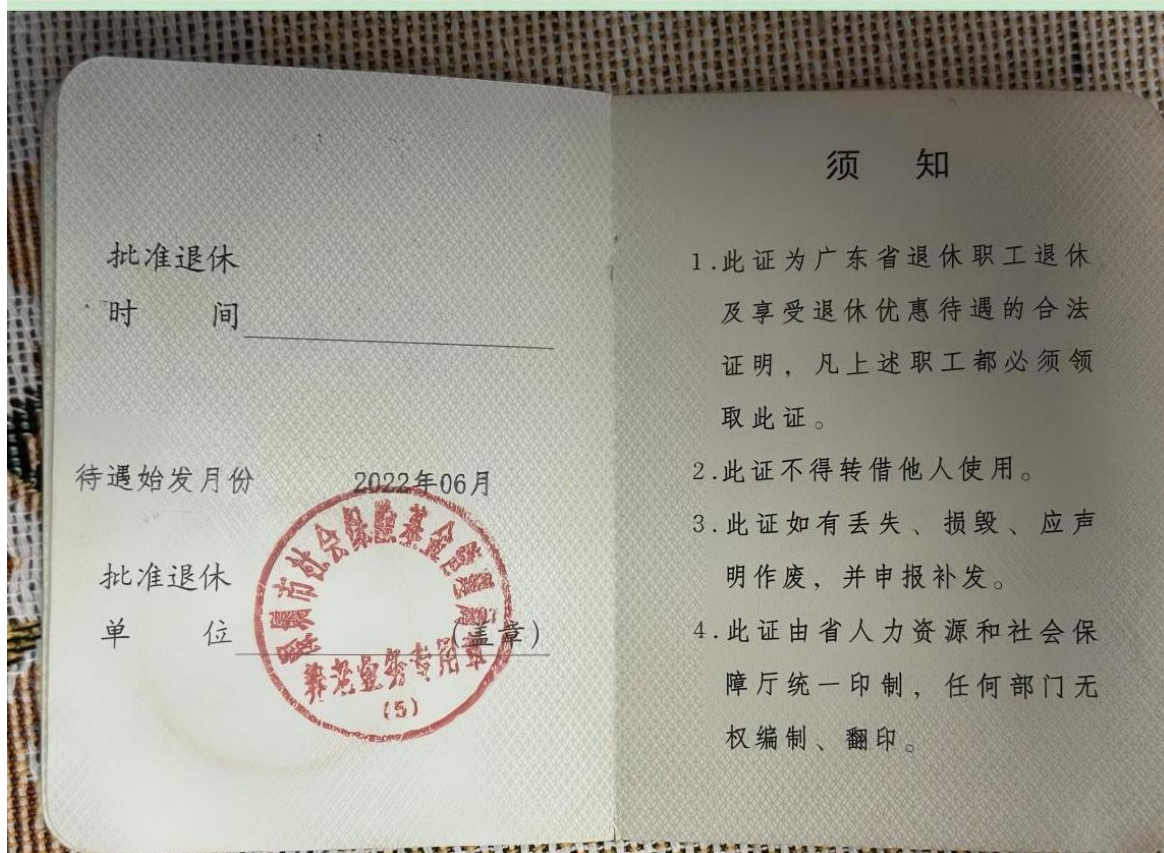 批准退休
时 间
待遇始发月份 2022年06月
批准退休
单 位 (盖章)
市社会保险基金管理局
(5)
须 知
1.此证为广东省退休职工退休
及享受退休优惠待遇的合法
证明，凡上述职工都必须领
取此证。
2.此证不得转借他人使用。
3.此证如有丢失、损毁、应声
明作废，并申报补发。
4.此证由省人力资源和社会保
障厅统一印制，任何部门无
权编制、翻印。